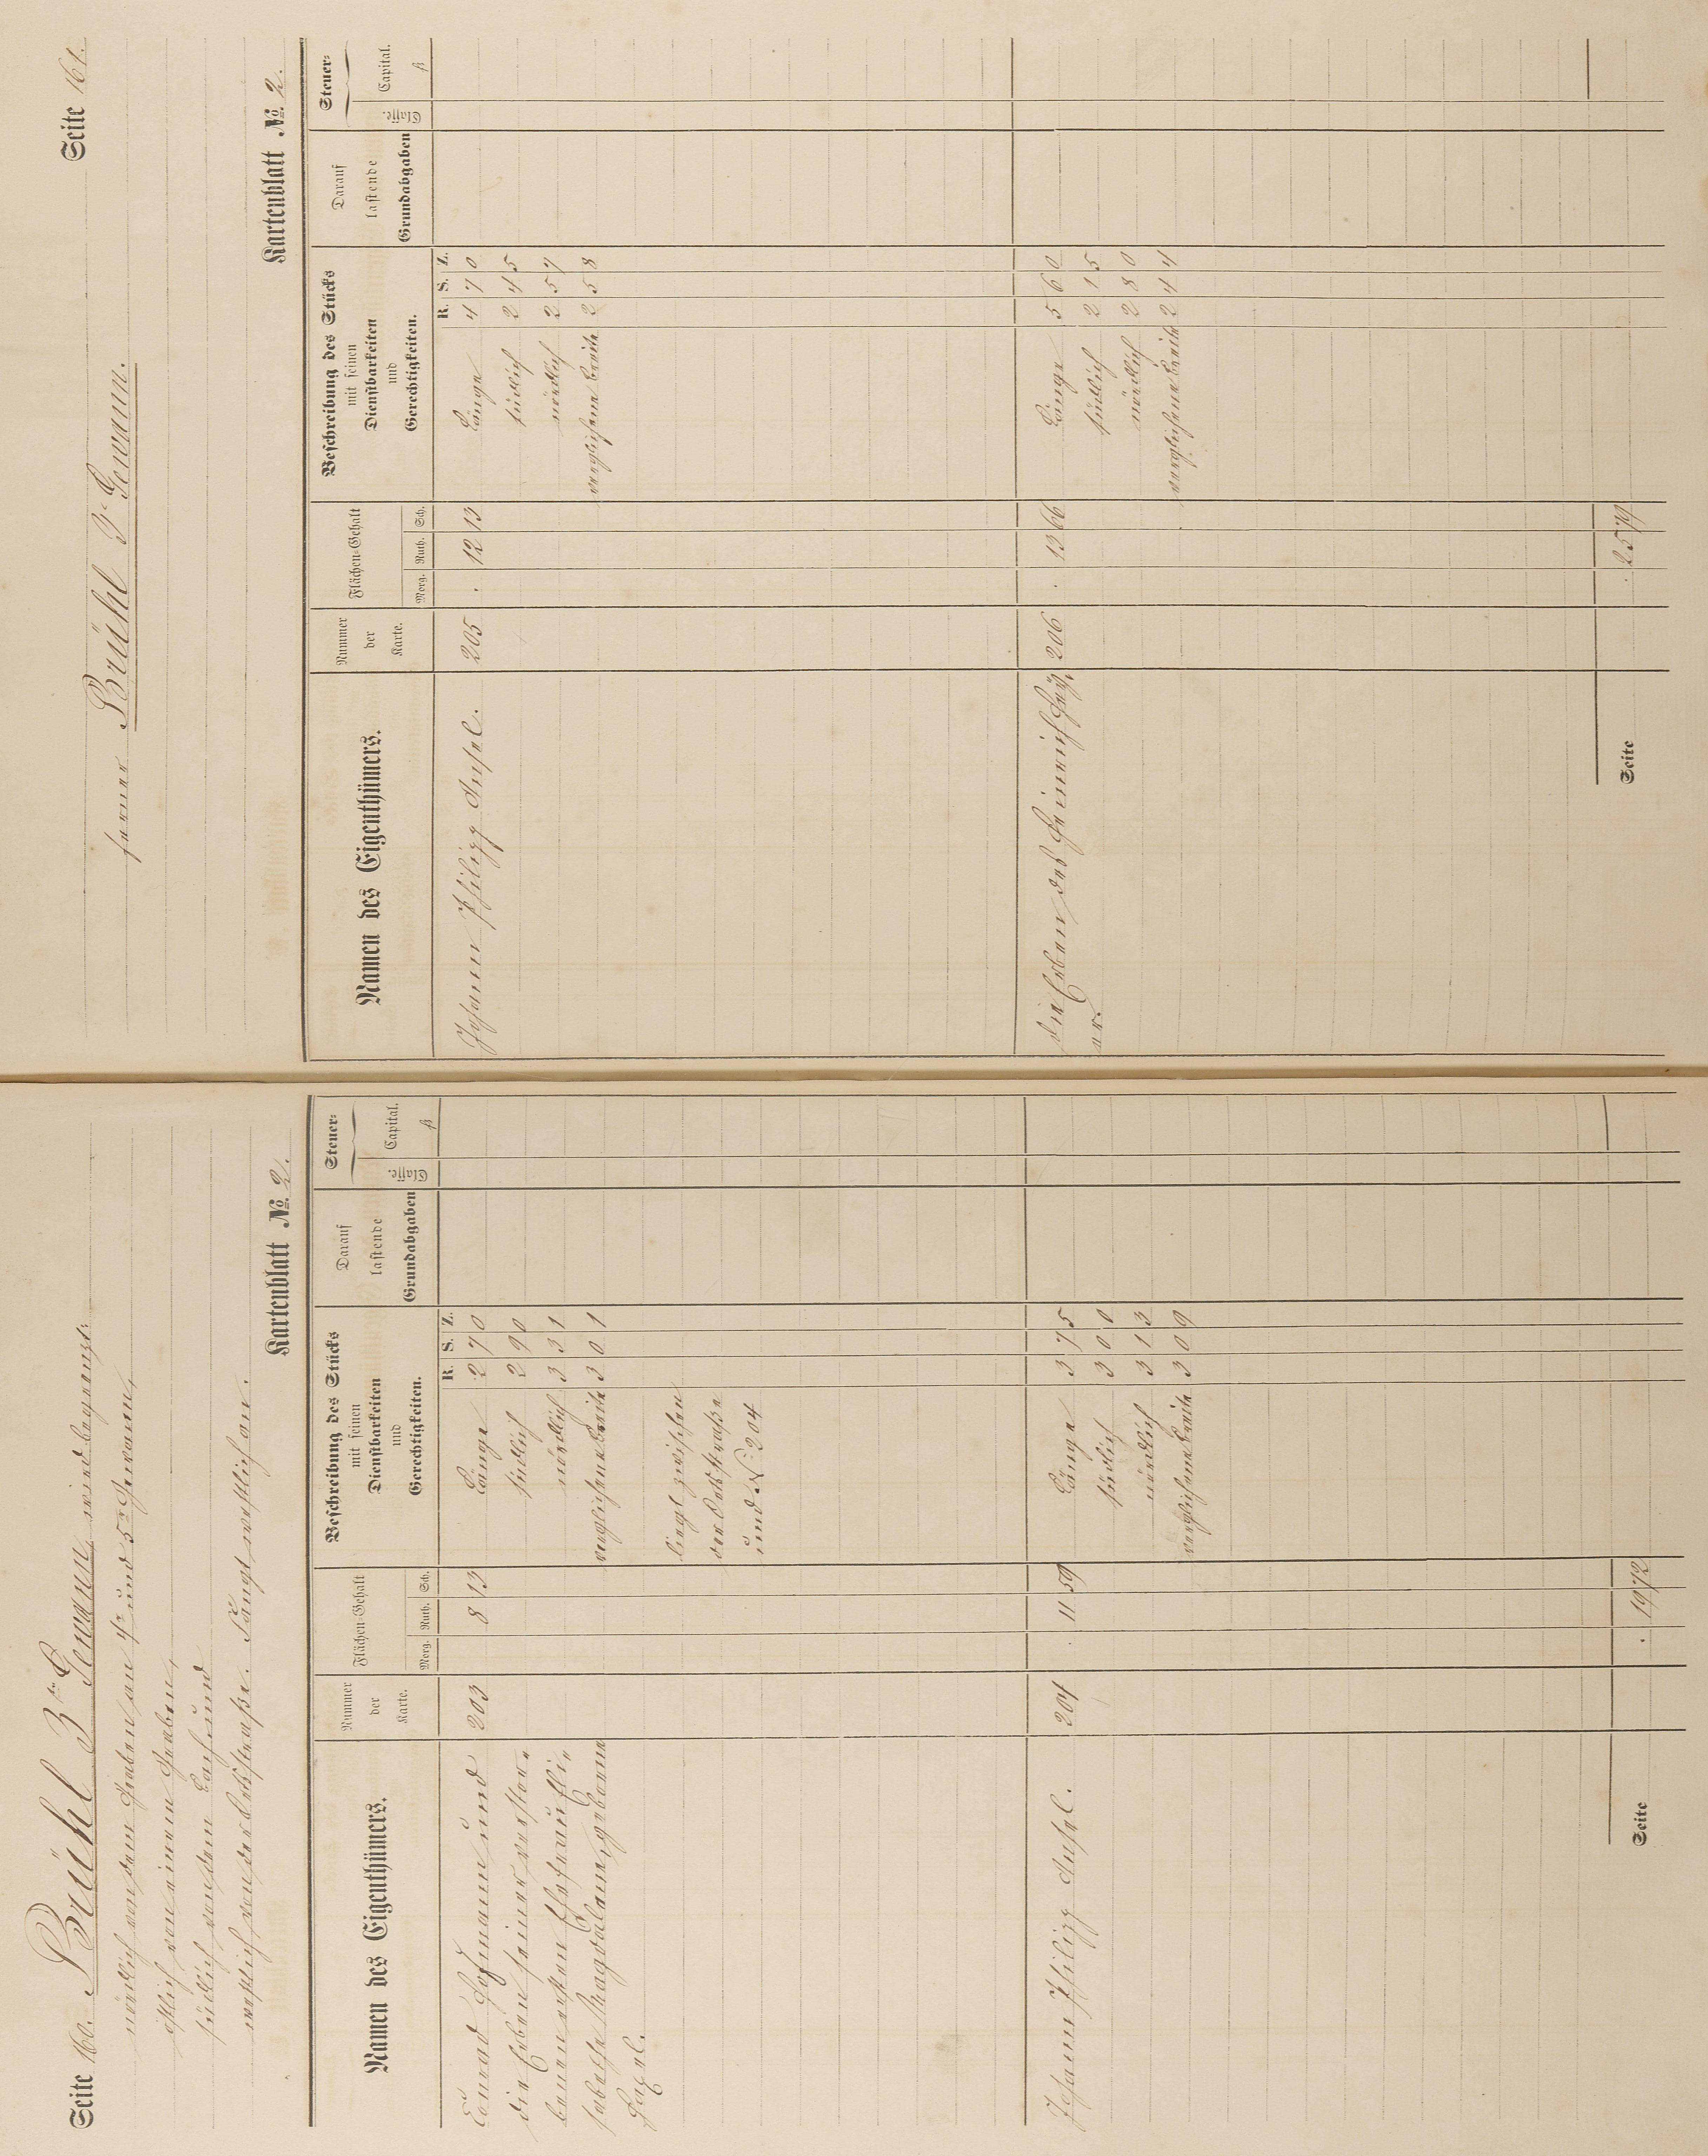 Seite 160. Brühl 3te Gewann, wird begrenzt:
nördlich von dem Graben an 4r und 5r Gewann,
östlich von einem Graben,
südlich von dem Bach und
westlich von der Ortsstraße. Fängt westlich an.
Kartenblatt No. 2.
Namen des Eigenthümers.
Nummer der Karte.
Flächen-Gehalt
Morg. Ruth. Sch.
Beschreibung des Stücks
mit seinen
Dienstbarkeiten
und
Gerechtigkeiten.
R. S. Z.
Darauf
lastende
Grundabgaben
Steuer-
Classe. Capital.
fl
Conrad Hofmann und 203 8 13 Länge 2 7 0
die Erben seiner verstor- südlich 2 9 0
benen ersten Ehefrau Eli- nördlich 3 3 1
sabetha Magdalena, geborne verglichene Breite 3 0 1
liegt zwischen
der Ortsstraße
und No 204
Johann Philipp Ansel. 204 . 11 59 Länge 3 7 5
südlich 3 0 0
nördlich 3 1 3
verglichene Breite 3 0 9
Seite . 19 72
Seite 161.
ferner Brühl 3te Gewann.
Kartenblatt No. 2.
Namen des Eigenthümers.
Nummer der Karte.
Flächen-Gehalt
Morg. Ruth. Sch.
Beschreibung des Stücks
mit seinen
Dienstbarkeiten
und
Gerechtigkeiten.
R. S. Z.
Darauf
lastende
Grundabgaben
Steuer-
Classe. Capital.
fl
Johann Philipp Ansel. 205 . 12 13 Länge 4 7 0
südlich 2 4 5
nördlich 2 5 7
verglichene Breite 2 5 8
die Erben des Heinrich 206 . 13 66 Länge 5 6 0
südlich 2 1 5
nördlich 2 8 0
verglichene Breite 2 4 4
Seite . 25 79